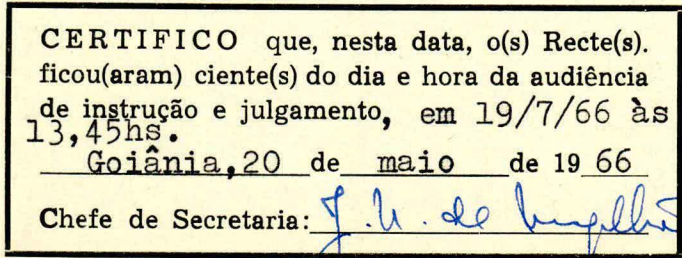 CERTIFICO que, nesta data, o(s) Recte(s).
ficou(aram) ciente(s) do dia e hora da audiência
de instrução e julgamento, em 19/7/66 às
13,45hs.
Goiânia,20 de maio de 19 66
Chefe de Secretaria: J. N. de